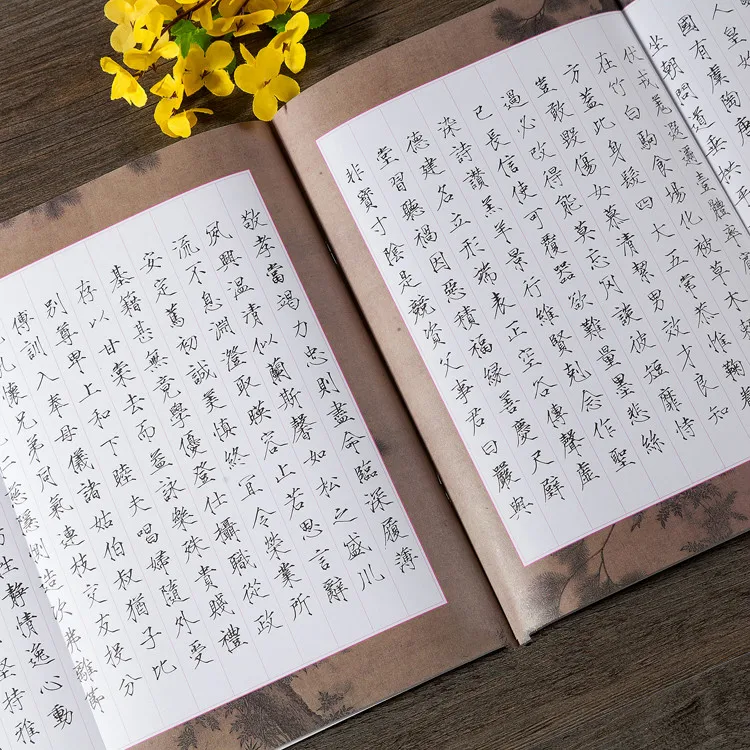 人皇始
國有虞陶唐
坐朝問道垂拱平
伏戎羌遐邇壹體率
在竹白駒食場化被草木賴
方蓋此身髮四大五常恭惟鞠養
豈敢毀傷女慕清絜男效才良知
過必改得能莫忘罔談彼短靡恃
己長信使可覆器欲難量墨悲絲
染詩讚羔羊景行維賢剋念作聖
德建名立形端表正空谷傳聲虛
堂習聽禍因惡積福緣善慶尺璧
非寶寸陰是競資父事君曰嚴與
敬孝當竭力忠則盡命臨深履薄
夙興溫凊似蘭斯馨如松之盛川
流不息淵澄取暎容止若思言辭
安定篤初誠美慎終宜令榮業所
基籍甚無竟學優登仕攝職從政
存以甘棠去而益詠樂殊貴賤禮
別尊卑上和下睦夫唱婦隨外受
傅訓入奉母儀諸姑伯叔猶子比
孔懷兄弟同氣連枝交友投分
仁慈隱惻造次弗離節
性靜情逸心動
堅持雅